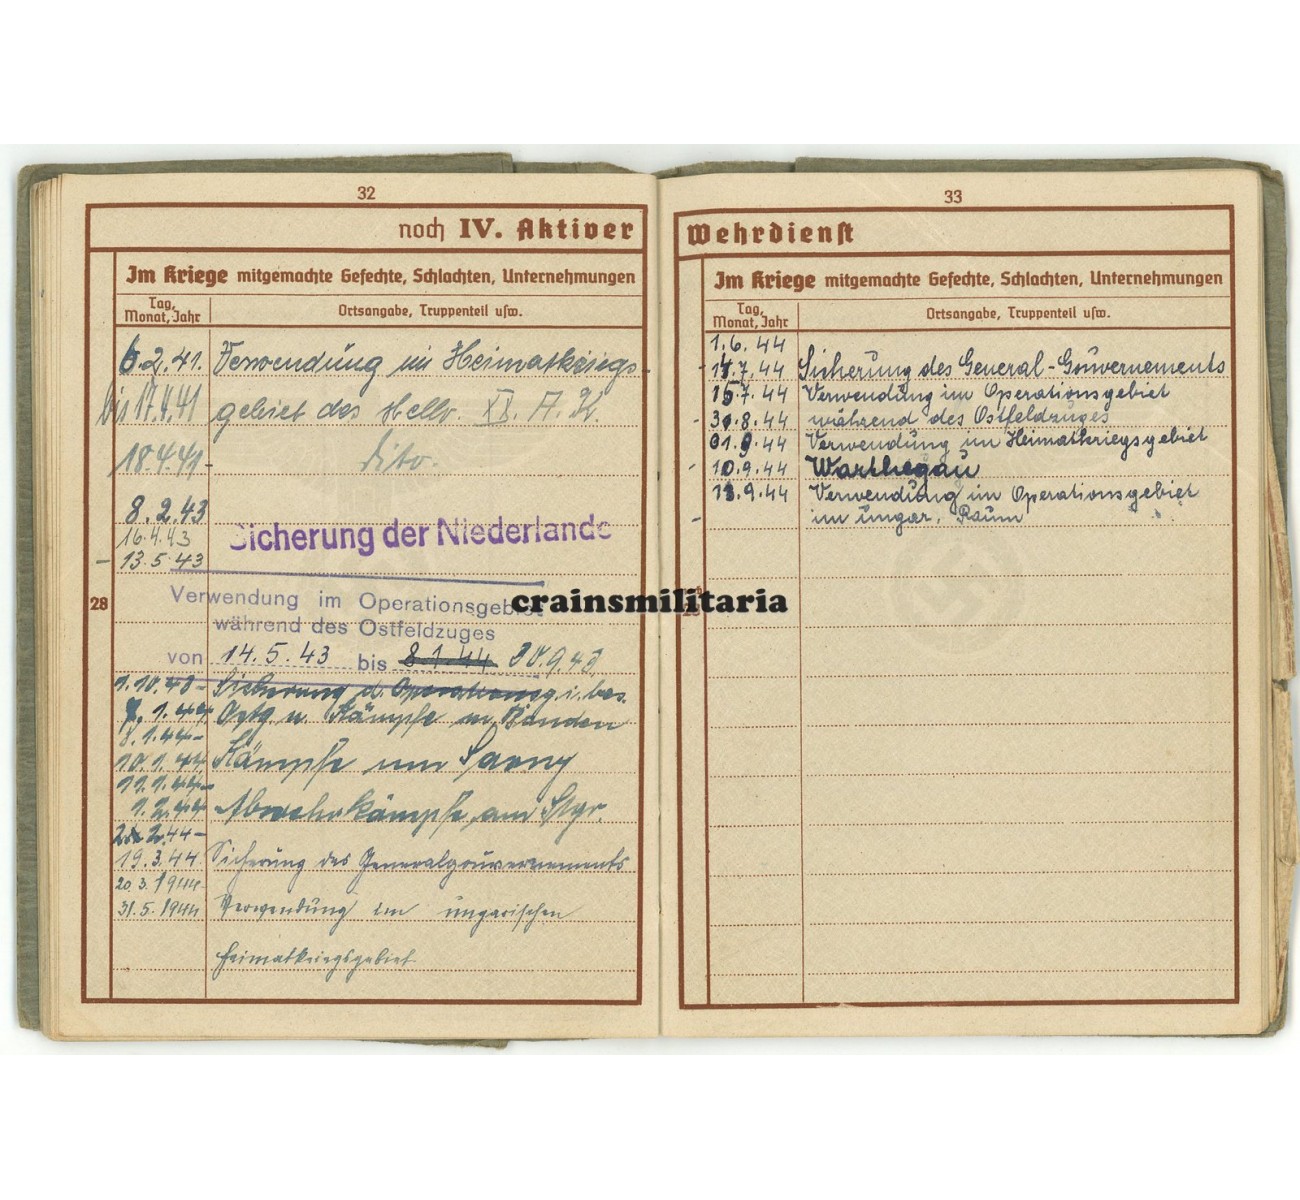 32
noch IV. Aktiver
Im Kriege mitgemachte Gefechte, Schlachten, Unternehmungen
Tag, Monat, Jahr
Ortsangabe, Truppenteil usw.
6.2.41. Verwendung im Heimatkriegs-
bis 17.4.41 gebiet des stellv. XI. A.K.
18.4.41 - dito.
8.2.43
16.4.43 Sicherung der Niederlande
- 13.5.43
28
Verwendung im Operationsgebiet
während des Ostfeldzuges
von 14.5.43 bis 8.1.44 30.9.43
1.10.43 - Sicherung d. Operationsg. i. bes.
7.1.44 Ostg. u. Kämpfe m. Banden
8.1.44 -
10.1.44 Kämpfe um Sarny
11.1.44 -
1.2.44 Abwehrkämpfe am Styr.
2.2.44 -
19.3.44. Sicherung des Generalgouvernements
20.3.1944
31.5.1944 Verwendung im ungarischen
Heimatkriegsgebiet
33
Wehrdienst
Im Kriege mitgemachte Gefechte, Schlachten, Unternehmungen
Tag, Monat, Jahr
Ortsangabe, Truppenteil usw.
1.6.44
- 14.7.44 Sicherung des General-Gouvernements
15.7.44 Verwendung im Operationsgebiet
- 31.8.44 während des Ostfeldzuges
01.9.44 Verwendung im Heimatkriegsgebiet
- 10.9.44 Warthegau
11.9.44 Verwendung im Operationsgebiet
- im ungar. Raum
crainsmilitaria